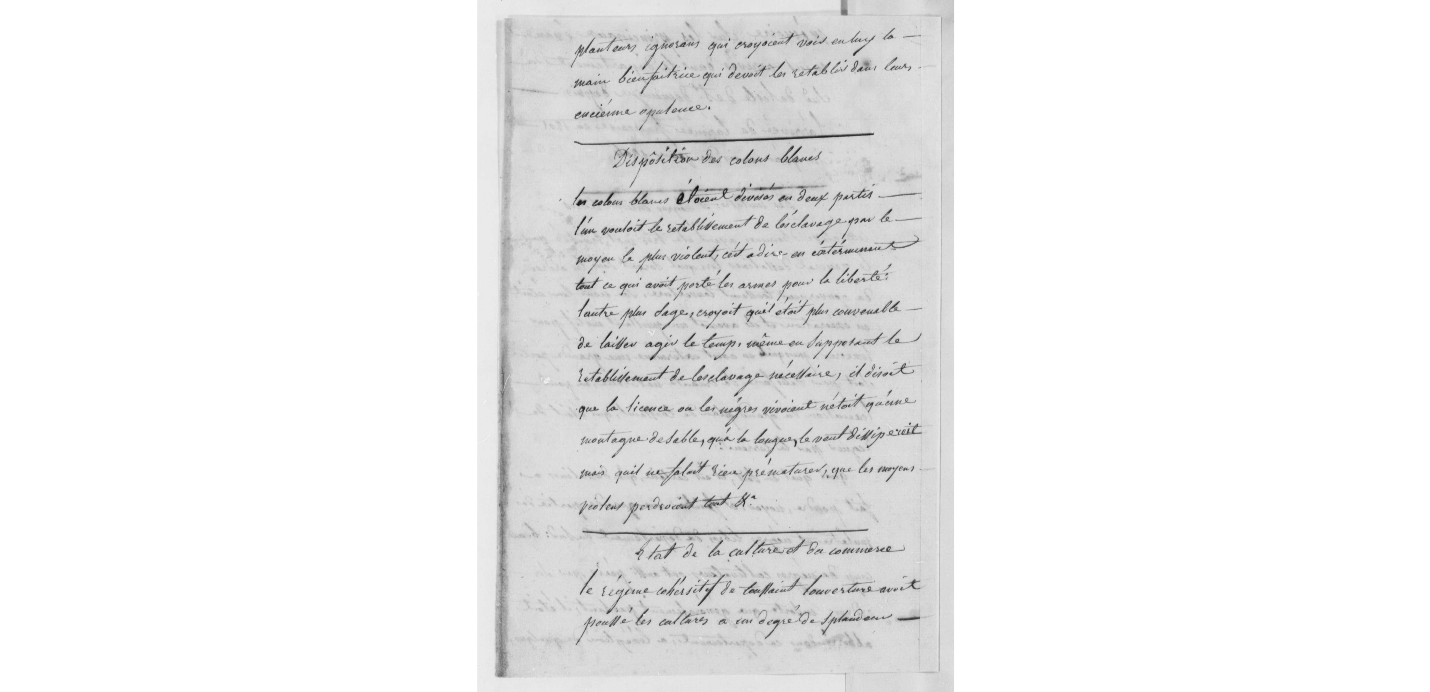 planteurs ignorans qui croyoient voir en luy la
main bienfaitrice qui devoit les retablir dans leurs
enciénne opulence.
Dispôsition des colons blancs
les colons blancs étoient divisés en deux partis
l'un vouloit le retablissement de lésclavage par le
moyen le plus violent, cést adire en éxtérminant
tout ce qui avoit porté les armes pour la liberté:
lautre plus sage, croyoit quil étoit plus convenable
de laisser agir le temp, même en supposant le
retablissement de lesclavage nécessaire, il disoit
que la licence ou les négres vivoient nétoit qúúne
montagne de sable, qúà la longue, le vent dissiperoit
mais quil ne faloit rien prématurer, que les moyens
violens perdroient tout &a
Etat de la culture et du commerce
le régime cohérsitif de toussaint louverture avoit
poussé les cultures a un degré de splandeur